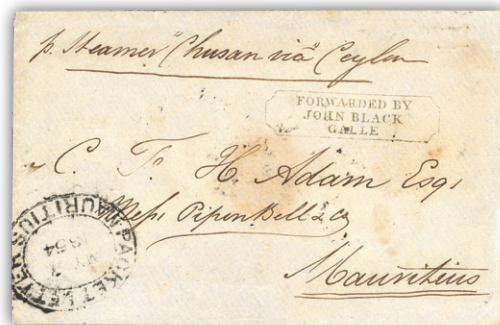 p. Steamer "Chusan via" Ceylon
FORWARDED BY
JOHN BLACK
GALLE
C. F. H Adam Esqr
Messrs Pipon Bell & Co
Mauritius
PACKET LETTER
MAURITIUS
1854